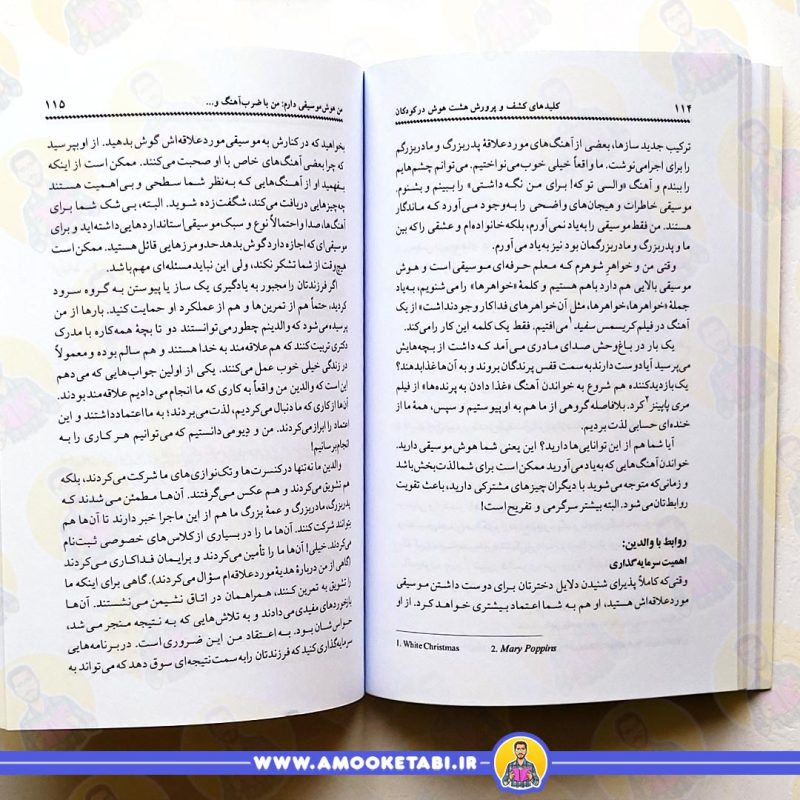 ۱۱۴
کلیدهای کشف و پرورش هشت هوش در کودکان
ترکیب جدید سازها، بعضی از آهنگ‌های موردعلاقهٔ پدربزرگ و مادربزرگم
را برای اجرا می‌نوشت. ما واقعاً خیلی خوب می‌نواختیم. می‌توانم چشم‌هایم
را ببندم و آهنگ «والسی تو که! برای من نگه داشتی» را ببینم و بشنوم.
موسیقی خاطرات و هیجان‌های واضحی را به‌وجود می‌آورد که ماندگار
هستند. من فقط موسیقی را به‌یاد نمی‌آورم، بلکه خانواده‌ام و عشقی را که بین
ما و پدربزرگ و مادربزرگمان بود نیز به‌یاد می‌آورم.
وقتی من و خواهرِ شوهرم که معلم حرفه‌ای موسیقی است و هوش
موسیقی بالایی هم دارد باهم هستیم و کلمهٔ «خواهرها» را می‌شنویم، به‌یاد
جملهٔ «خواهرها، خواهرها، مثل آن خواهرهای فداکار وجود نداشت» از یک
آهنگ در فیلم کریسمس سفید۱ می‌افتیم. فقط یک کلمه این کار را می‌کند.
یک بار در باغ‌وحش صدای مادری می‌آمد که داشت از بچه‌هایش
می‌پرسید آیا دوست دارند به سمت قفس پرندگان بروند و به آن‌ها غذا بدهند؟
یک بازدیدکننده هم شروع به خواندن آهنگ «غذا دادن به پرنده‌ها» از فیلم
مری پاپینز۲ کرد. بلافاصله گروهی از ما هم به او پیوستیم و سپس، همهٔ ما از
خنده‌ای حسابی لذت بردیم.
آیا شما هم از این توانایی‌ها دارید؟ این یعنی شما هوش موسیقی دارید.
خواندن آهنگ‌هایی که به‌یاد می‌آورید ممکن است برای شما لذت‌بخش باشد
و زمانی‌که متوجه می‌شوید با دیگران چیزهای مشترکی دارید، باعث تقویت
روابطتان می‌شود. البته بیشتر سرگرمی و تفریح است!
روابط با والدین:
اهمیت سرمایه‌گذاری
وقتی‌که کاملاً پذیرای شنیدن دلایل دخترتان برای دوست داشتن موسیقی
موردعلاقه‌اش هستید، او هم به شما اعتماد بیشتری خواهد کرد. از او
1. White Christmas 2. Mary Poppins
من هوش موسیقی دارم: من با ضرب‌آهنگ و...
۱۱۵
بخواهید که در کنارش به موسیقی موردعلاقه‌اش گوش بدهید. از او بپرسید
که چرا بعضی آهنگ‌های خاص با او صحبت می‌کنند. ممکن است از اینکه
بفهمید او از آهنگ‌هایی که به‌نظر شما سطحی و بی‌اهمیت هستند
چه‌چیزهایی دریافت می‌کند، شگفت‌زده شوید. البته، بی‌شک شما برای
آهنگ‌ها، صدا و احتمالاً نوع و سبک موسیقی استانداردهایی داشته‌اید و برای
موسیقی‌ای که اجازه دارد گوش بدهد حدومرزهایی قائل هستید. ممکن است
هیچ‌وقت از شما تشکر نکند، ولی این نباید مسئله‌ای مهم باشد.
اگر فرزندتان را مجبور به یادگیری یک ساز یا پیوستن به گروه سرود
کردید، حتماً هم از تمرین‌ها و هم از عملکرد او حمایت کنید. بارها از من
پرسیده می‌شود که والدینم چطور می‌توانستند دو تا بچهٔ همه‌کاره با مدرک
دکتری تربیت کنند که هم علاقه‌مند به خدا هستند و هم سالم بوده و معمولاً
در زندگی خیلی خوب عمل می‌کنند. یکی از اولین جواب‌هایی که می‌دهم
این است که والدین من واقعاً به کاری که ما انجام می‌دادیم علاقه‌مند بودند.
آن‌ها از کاری که ما دنبال می‌کردیم، لذت می‌بردند؛ به ما اعتماد داشتند و این
اعتماد را ابراز می‌کردند. من و دیو می‌دانستیم که می‌توانیم هر کاری را به
انجام برسانیم!
والدین ما نه‌تنها در کنسرت‌ها و تک‌نوازی‌های ما شرکت می‌کردند، بلکه
هم تشویق می‌کردند و هم عکس می‌گرفتند. آن‌ها مطمئن می‌شدند که
پدربزرگ، مادربزرگ و عمهٔ بزرگ ما هم از این ماجرا خبر دارند تا آن‌ها هم
بتوانند شرکت کنند. آن‌ها ما را در بسیاری از کلاس‌های خصوصی ثبت‌نام
می‌کردند. خیلی! آن‌ها ما را تأمین می‌کردند و برایمان فداکاری می‌کردند
(گاهی از من دربارهٔ هدیهٔ موردعلاقه‌ام سؤال می‌کردند). گاهی برای اینکه ما
را تشویق به تمرین کنند، همراهمان در اتاق نشیمن می‌نشستند. آن‌ها
بازخوردهای مفیدی می‌دادند و به تلاش‌هایی که به نتیجه منجر می‌شد،
حواس‌شان بود. به اعتقاد من این ضروری است. در برنامه‌هایی
سرمایه‌گذاری کنید که فرزندتان را به سمت نتیجه‌ای سوق دهد که می‌تواند به
WWW.AMOOKETABI.IR